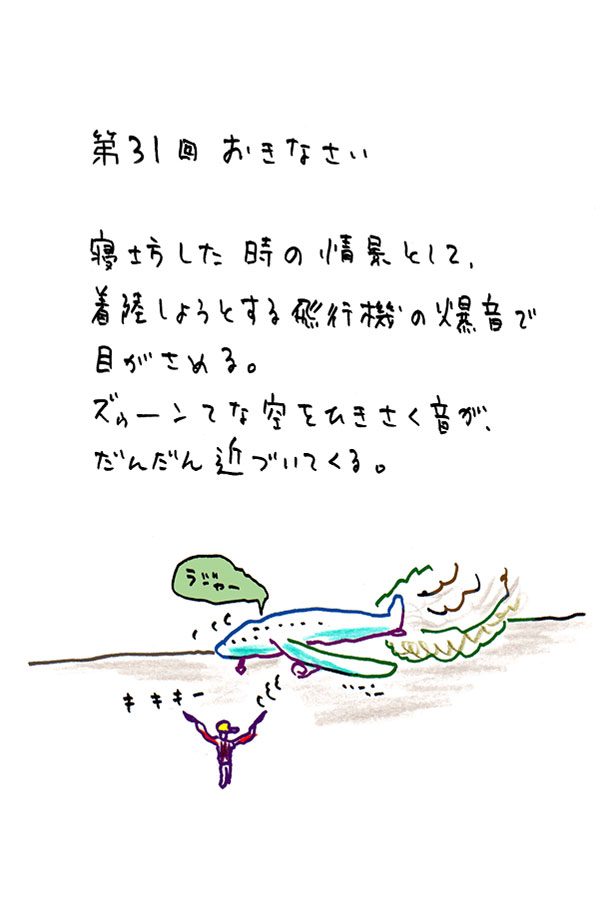 第31回 おきなさい
寝坊した時の情景として、
着陸しようとする飛行機の爆音で
目がさめる。
ズゥーンてな空をひきさく音が、
だんだん近づいてくる。
ラジャー
キキキー